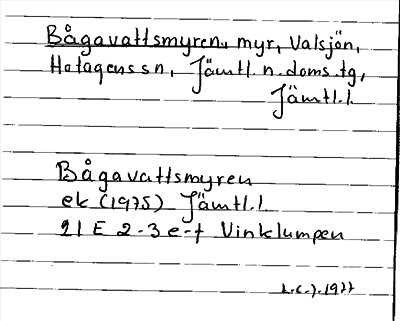 Bågavattsmyren, myr, Valsjön,
Hotagens sn, Jämtl. n. doms. tg,
Jämtl. l.
Bågavattsmyren
ek (1975) Jämtl. l.
21 E 2-3 e-f Vinklumpen
1977